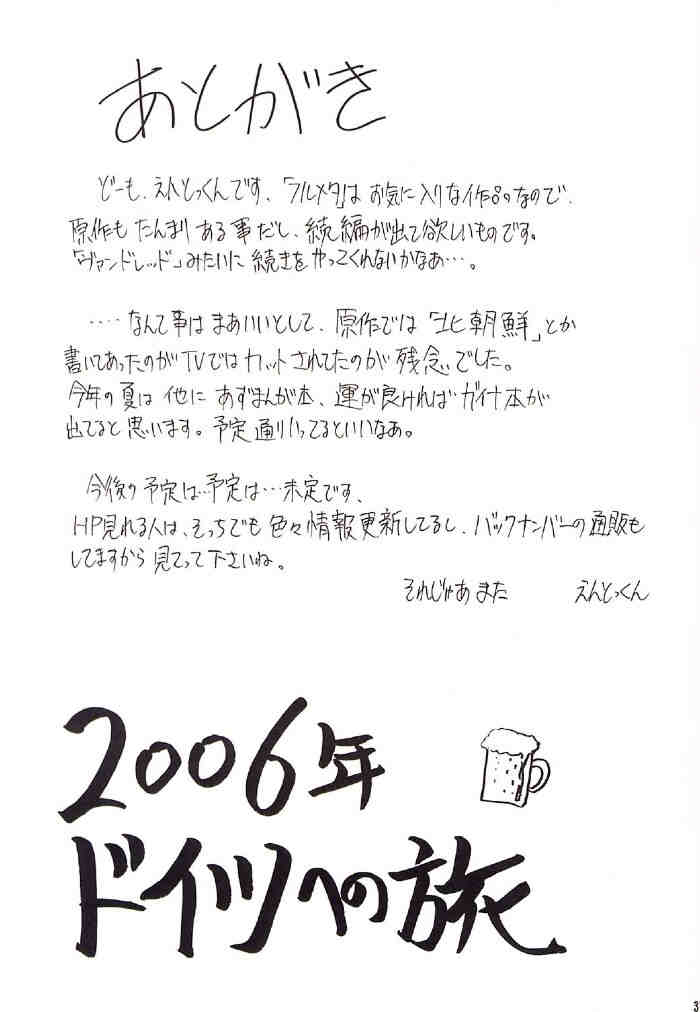 あとがき
どーも、えんとっくんです、「フルメタ」は お気に入りな作品なので、
原作も たんまり ある事だし、続編が出て欲しいものです。
「ヴァンドレッド」みたいに 続きを やってくれないかなあ…。
‥‥なんて事は まあいいとして、原作では「北朝鮮」とか
書いてあったのがTVではカットされてたのが 残念でした。
今年の夏は 他に あずまんが本、運が良ければ ガイナ本が
出てると 思います。予定通り入ってるといいなあ。
今後の予定は…予定は…未定です、
HP見れる人は、そっちでも 色々情報更新してるし、バックナンバーの通販も
してますから 見てって下さいね。
それじゃあ また えんとっくん
2006年
ドイツへの旅
3